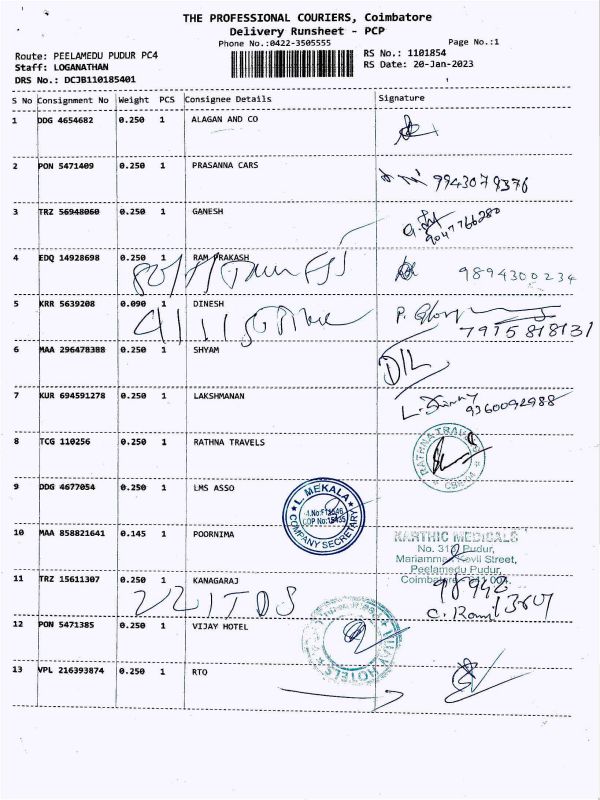 THE PROFESSIONAL COURIERS, Coimbatore
Delivery Runsheet - PCP
Phone No.:0422-3505555
Page No.:1
Route: PEELAMEDU PUDUR PC4
Staff: LOGANATHAN
DRS No.: DCJB110185401
RS No.: 1101854
RS Date: 20-Jan-2023
S No Consignment No Weight PCS Consignee Details Signature
1 DDG 4654682 0.250 1 ALAGAN AND CO
2 PON 5471409 0.250 1 PRASANNA CARS
9943079376
3 TRZ 56948060 0.250 1 GANESH
9047766280
4 EDQ 14928698 0.250 1 RAM PRAKASH
9894300234
5 KRR 5639208 0.090 1 DINESH
7915818131
6 MAA 296478388 0.250 1 SHYAM
7 KUR 694591278 0.250 1 LAKSHMANAN
9360092988
8 TCG 110256 0.250 1 RATHNA TRAVELS
RATHNA TRAVELS
9 DDG 4677054 0.250 1 LMS ASSO
L. MEKALA
COMPANY SECRETARY
10 MAA 858821641 0.145 1 POORNIMA
KARTHIC MEDICALS
Pudur,
Street,
Peelamedu Pudur,
11 TRZ 15611307 0.250 1 KANAGARAJ
12 PON 5471385 0.250 1 VIJAY HOTEL
HOTELS
13 VPL 216393874 0.250 1 RTO